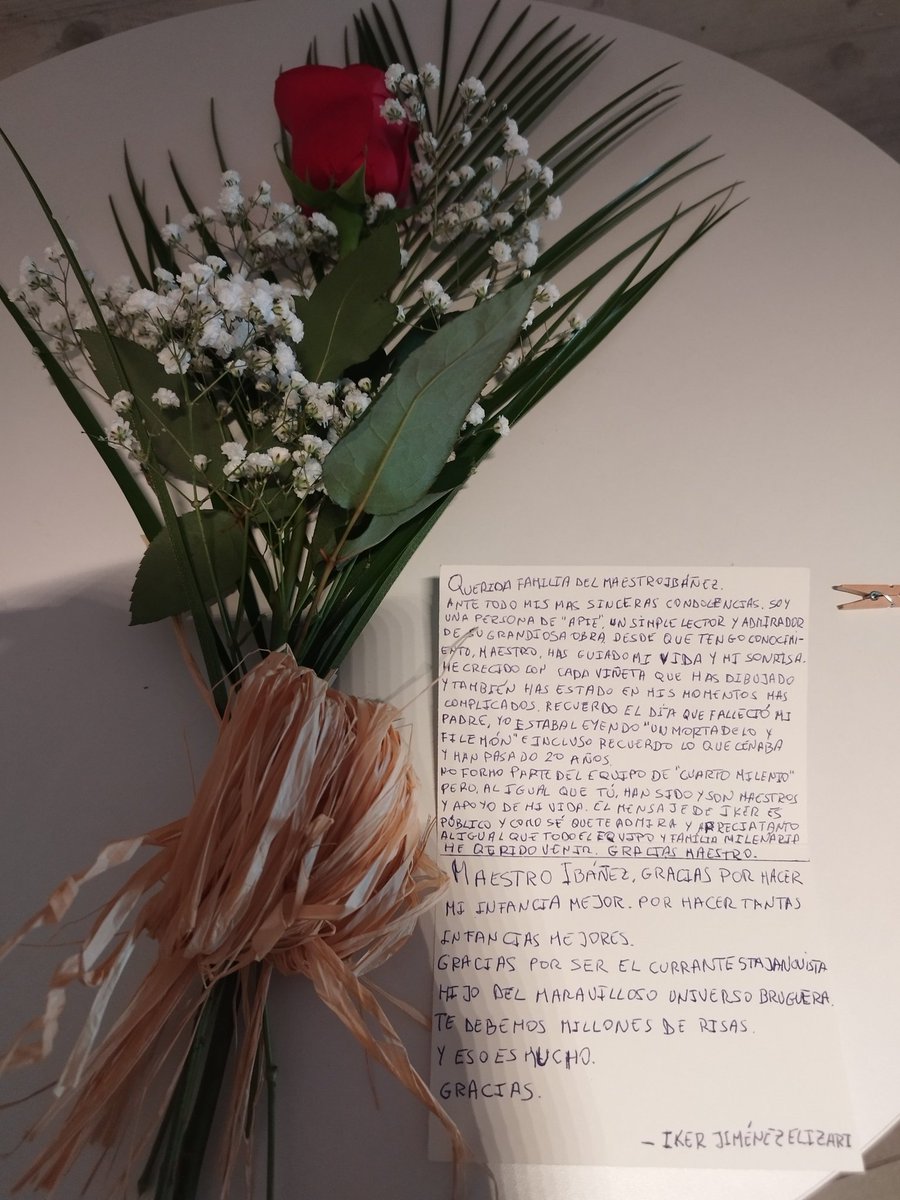 QUERIDA FAMILIA DEL MAESTRO IBÁÑEZ.
ANTE TODO MIS MAS SINCERAS CONDOLENCIAS. SOY
UNA PERSONA DE "APIE", UN SIMPLE LECTOR Y ADMIRADOR
DE SU GRANDIOSA OBRA DESDE QUE TENGO CONOCIMI-
ENTO, MAESTRO, HAS GUIADO MI VIDA Y MI SONRISA.
HE CRECIDO CON CADA VIÑETA QUE HAS DIBUJADO
Y TAMBIÉN HAS ESTADO EN MIS MOMENTOS MAS
COMPLICADOS. RECUERDO EL DÍA QUE FALLECIÓ MI
PADRE, YO ESTABA LEYENDO "UN MORTADELO Y
FILEMÓN" E INCLUSO RECUERDO LO QUE CENABA
Y HAN PASADO 20 AÑOS.
NO FORMO PARTE DEL EQUIPO DE "CUARTO MILENIO"
PERO, AL IGUAL QUE TÚ, HAN SIDO Y SON MAESTROS
Y APOYO DE MI VIDA. EL MENSAJE DE IKER ES
PÚBLICO Y COMO SÉ QUE TE ADMIRA Y APRECIA TANTO
AL IGUAL QUE TODO EL EQUIPO Y FAMILIA MILENARIA
HE QERIDO VENIR. GRACIAS MAESTRO.
MAESTRO IBÁÑEZ, GRACIAS POR HACER
MI INFANCIA MEJOR. POR HACER TANTAS
INFANCIAS MEJORES.
GRACIAS POR SER EL CURRANTE STAJANOVISTA
HIJO DEL MARAVILLOSO UNIVERSO BRUGUERA.
TE DEBEMOS MILLONES DE RISAS.
Y ESO ES MUCHO.
GRACIAS.
- IKER JIMÉNEZ ELIZARI